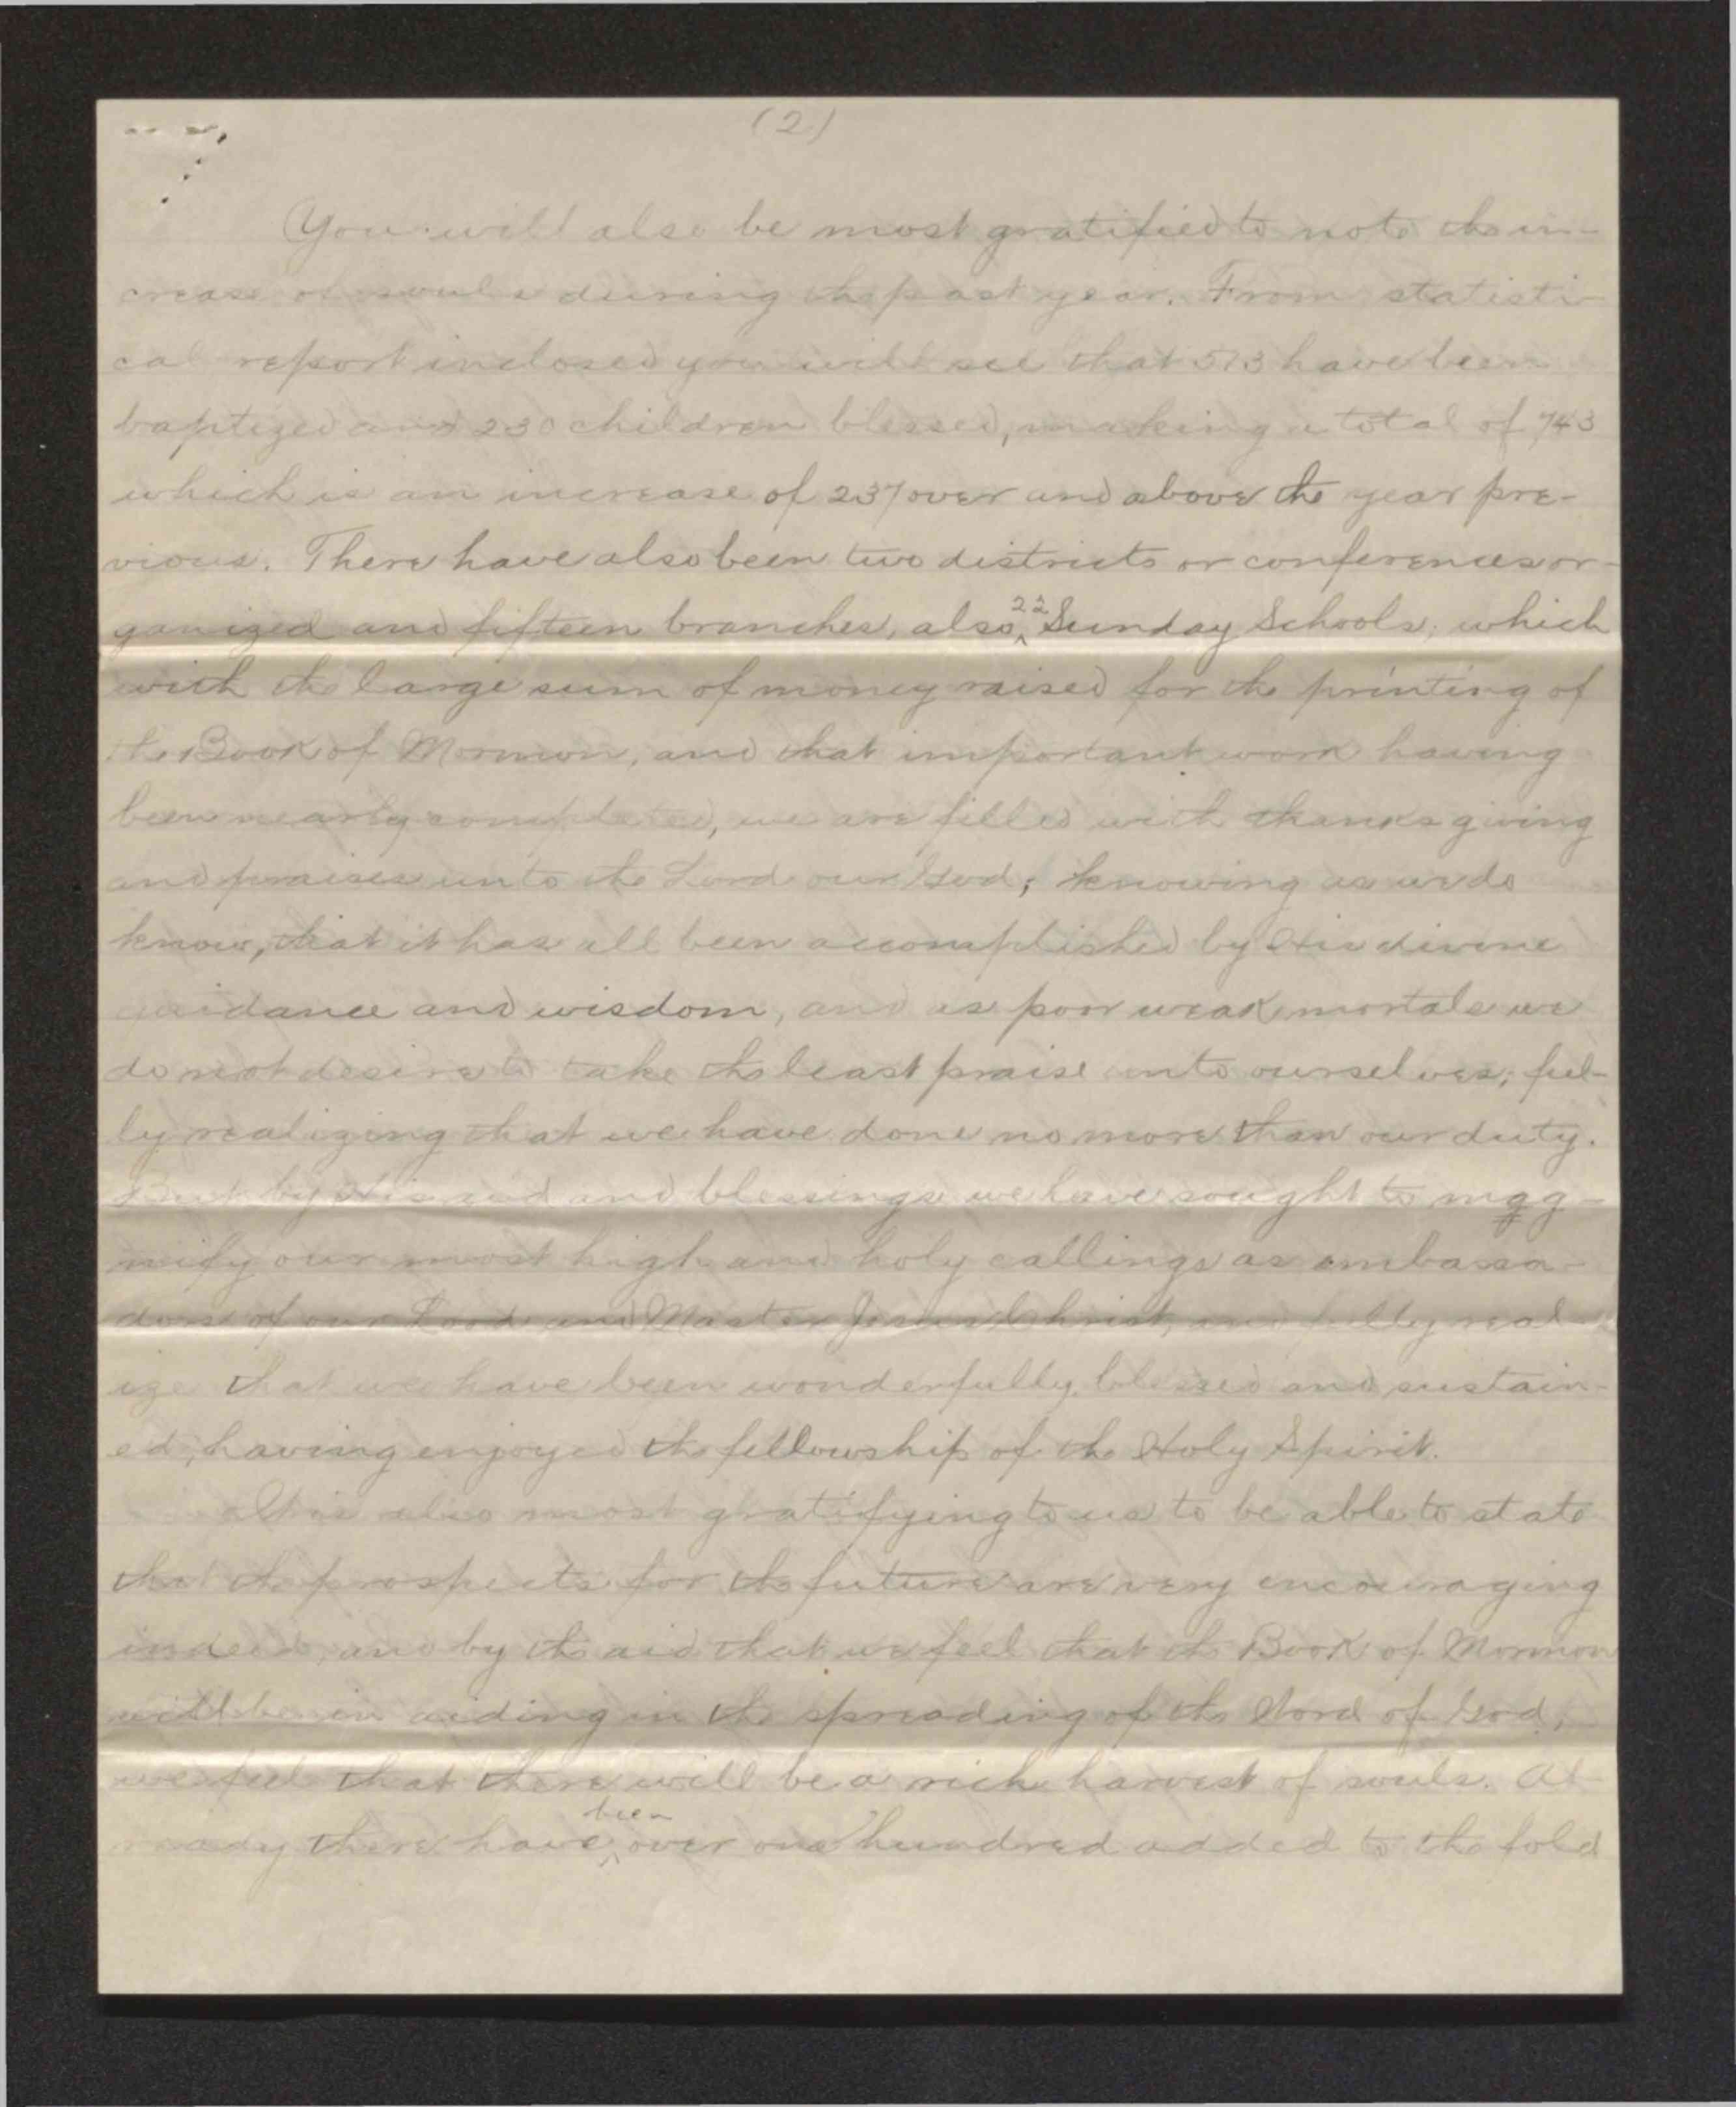 (2)
You will also be most gratified to note the in-
crease of souls during the past year. From statisti-
cal report inclosed you will see that 513 have been
baptized and 230 children blessed, making a total of 743
which is an increase of 237 over and above the year pre-
vious. There have also been two districts or conferences or-
ganized and fifteen branches, also 22 Sunday Schools, which
with the large sum of money raised for the printing of
the Book of Mormon, and that important work having
been nearly completed, we are filled with thanksgiving
and praises unto the Lord our God; knowing as we do
know, that it has all been accomplished by His divine
guidance and wisdom, and as poor weak mortals we
do not desire to take the least praise unto ourselves; ful-
ly realizing that we have done no more than our duty.
But by His aid and blessings we have sought to mag-
nify our most high and holy callings as embassa-
dors of our Lord and Master Jesus Christ, and fully real-
ize that we have been wonderfully blessed and sustain-
ed, having enjoyed the fellowship of the Holy Spirit.
It is also most gratifying to us to be able to state
that the prospects for the future are very encouraging
indeed, and by the aid that we feel that the Book of Mormon
will be in aiding in the spreading of the Word of God,
we feel that there will be a rich harvest of souls. Al-
ready there have been over one hundred added to the fold